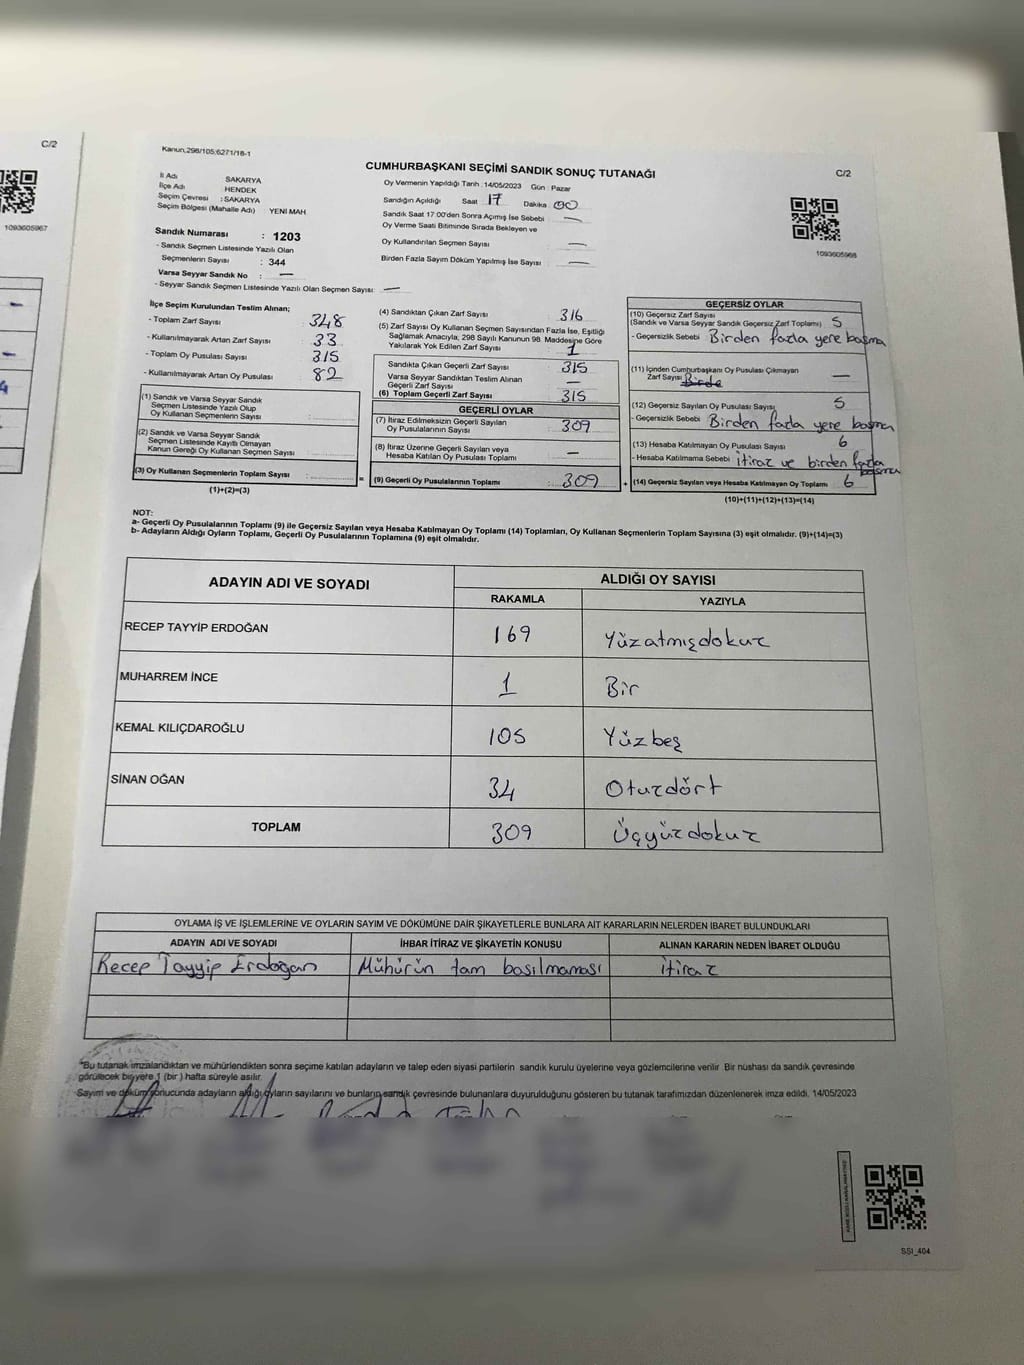 C/2
1093605967
Kanun,298/105;6271/18-1
CUMHURBAŞKANI SEÇİMİ SANDIK SONUÇ TUTANAĞI
C/2
İl Adı SAKARYA
İlçe Adı HENDEK
Seçim Çevresi : SAKARYA
Seçim Bölgesi (Mahalle Adı) YENİ MAH
Oy Vermenin Yapıldığı Tarih :14/05/2023 Gün : Pazar
Sandığın Açıldığı Saat 17 Dakika 00
Sandık Saat 17.00'den Sonra Açımış İse Sebebi —
Oy Verme Saati Bitiminde Sırada Bekleyen ve
Oy Kullandırılan Seçmen Sayısı —
Birden Fazla Sayım Döküm Yapılmış İse Sayısı —
1093605968
Sandık Numarası : 1203
- Sandık Seçmen Listesinde Yazılı Olan
Seçmenlerin Sayısı : 344
Varsa Seyyar Sandık No : —
- Seyyar Sandık Seçmen Listesinde Yazılı Olan Seçmen Sayısı: —
İlçe Seçim Kurulundan Teslim Alınan;
- Toplam Zarf Sayısı 348
- Kullanılmayarak Artan Zarf Sayısı 33
- Toplam Oy Pusulası Sayısı 315
- Kullanılmayarak Artan Oy Pusulası 82
(1) Sandık ve Varsa Seyyar Sandık
Seçmen Listesinde Yazılı Olup
Oy Kullanan Seçmenlerin Sayısı
(2) Sandık ve Varsa Seyyar Sandık
Seçmen Listesinde Kayıtlı Olmayan
Kanun Gereği Oy Kullanan Seçmen Sayısı
(3) Oy Kullanan Seçmenlerin Toplam Sayısı
(1)+(2)=(3)
(4) Sandıktan Çıkan Zarf Sayısı 316
(5) Zarf Sayısı Oy Kullanan Seçmen Sayısından Fazla İse, Eşitliği
Sağlamak Amacıyla; 298 Sayılı Kanunun 98. Maddesine Göre
Yakılarak Yok Edilen Zarf Sayısı 1
Sandıkta Çıkan Geçerli Zarf Sayısı 315
Varsa Seyyar Sandıktan Teslim Alınan
Geçerli Zarf Sayısı —
(6) Toplam Geçerli Zarf Sayısı 315
GEÇERLİ OYLAR
(7) İtiraz Edilmeksizin Geçerli Sayılan
Oy Pusulalarının Sayısı 309
(8) İtiraz Üzerine Geçerli Sayılan veya
Hesaba Katılan Oy Pusulası Toplamı —
= (9) Geçerli Oy Pusulalarının Toplamı : 309
GEÇERSİZ OYLAR
(10) Geçersiz Zarf Sayısı
(Sandık ve Varsa Seyyar Sandık Geçersiz Zarf Toplamı) 5
- Geçersizlik Sebebi Birden fazla yere basma
(11) İçinden Cumhurbaşkanı Oy Pusulası Çıkmayan
Zarf Sayısı Birde —
(12) Geçersiz Sayılan Oy Pusulası Sayısı 5
- Geçersizlik Sebebi Birden fazla yere basma
(13) Hesaba Katılmayan Oy Pusulası Sayısı 6
- Hesaba Katılmama Sebebi itiraz ve birden fazla
basma
+ (14) Geçersiz Sayılan veya Hesaba Katılmayan Oy Toplamı 6
(10)+(11)+(12)+(13)=(14)
NOT:
a- Geçerli Oy Pusulalarının Toplamı (9) ile Geçersiz Sayılan veya Hesaba Katılmayan Oy Toplamı (14) Toplamları, Oy Kullanan Seçmenlerin Toplam Sayısına (3) eşit olmalıdır. (9)+(14)=(3)
b- Adayların Aldığı Oyların Toplamı, Geçerli Oy Pusulalarının Toplamına (9) eşit olmalıdır.
ADAYIN ADI VE SOYADI ALDIĞI OY SAYISI
RAKAMLA YAZIYLA
RECEP TAYYİP ERDOĞAN 169 Yüzatmışdokuz
MUHARREM İNCE 1 Bir
KEMAL KILIÇDAROĞLU 105 Yüzbeş
SİNAN OĞAN 34 Otuzdört
TOPLAM 309 Üçyüzdokuz
OYLAMA İŞ VE İŞLEMLERİNE VE OYLARIN SAYIM VE DÖKÜMÜNE DAİR ŞİKAYETLERLE BUNLARA AİT KARARLARIN NELERDEN İBARET BULUNDUKLARI
ADAYIN ADI VE SOYADI İHBAR İTİRAZ VE ŞİKAYETİN KONUSU ALINAN KARARIN NEDEN İBARET OLDUĞU
Recep Tayyip Erdoğan Mühürün tam basılmaması itiraz
"Bu tutanak imzalandıktan ve mühürlendikten sonra seçime katılan adayların ve talep eden siyasi partilerin sandık kurulu üyelerine veya gözlemcilerine verilir. Bir nüshası da sandık çevresinde
görülecek bir yere 1 (bir ) hafta süreyle asılır.
Sayım ve döküm sonucunda adayların aldığı oyların sayılarını ve bunların sandık çevresinde bulunanlara duyurulduğunu gösteren bu tutanak tarafımızdan düzenlenerek imza edildi. 14/05/2023
SSI_404